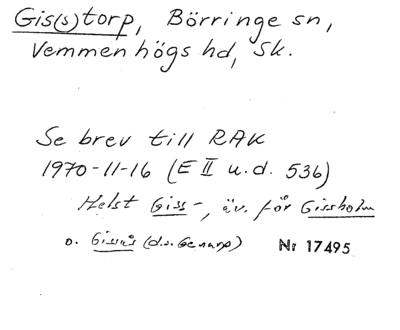 Gis(s)torp, Börringe sn,
Vemmenhögs hd, Sk.
Se brev till RAK
1970-11-16 (E II u.d. 536)
Helst Giss-, äv. för Gissholm
o. Gissås (d.s. Genarp) Nr 17495